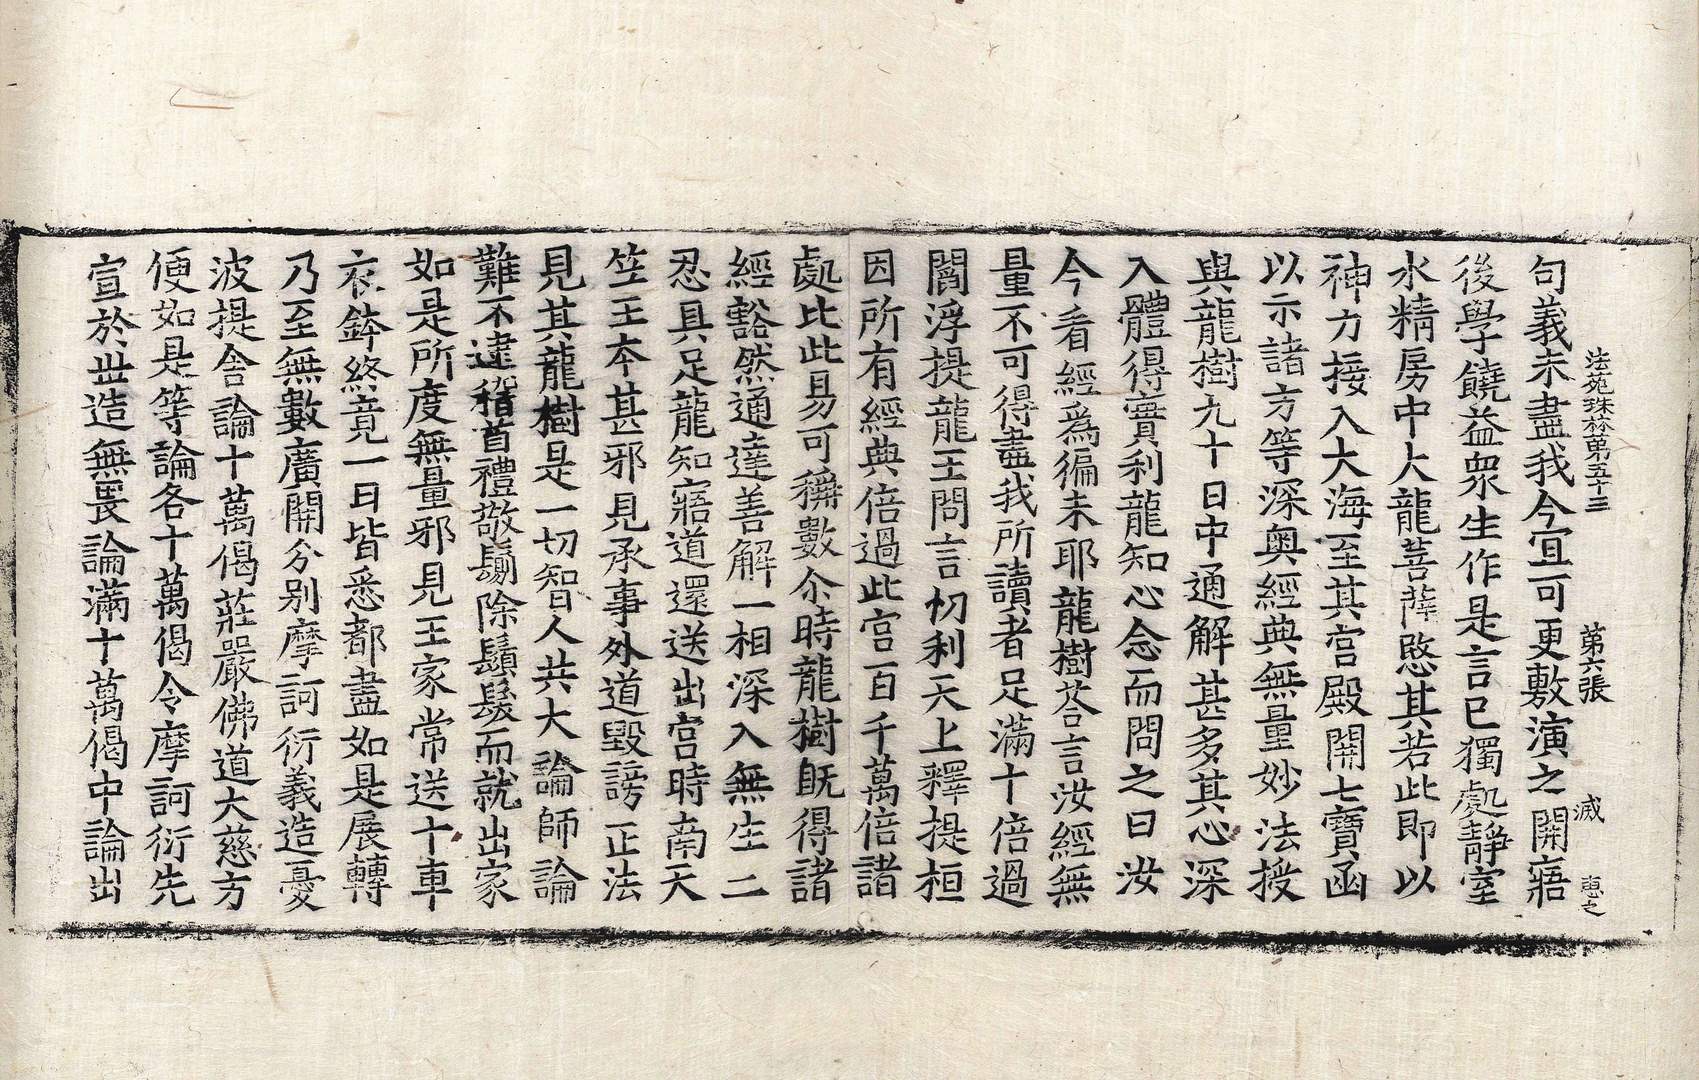 法苑珠林第五十三 第六張 滅 惠之
句義未盡我今宜可更敷演之開寤
後學饒益衆生作是言已獨處靜室
水精房中大龍菩薩愍其若此即以
神力接入大海至其宮殿開七寶函
以示諸方等深奧經典無量妙法授
與龍樹九十日中通解甚多其心深
入體得實利龍知心念而問之曰汝
今看經爲徧未耶龍樹荅言汝經無
量不可得盡我所讀者足滿十倍過
閻浮提龍王問言忉利天上釋提桓
因所有經典倍過此宮百千萬倍諸
處比此易可稱數尒時龍樹旣得諸
經豁然通達善解一相深入無生二
忍具足龍知寤道還送出宮時南天
竺王夲甚邪見承事外道毀謗正法
見其龍樹是一切智人共大論師論
難不逮稽首禮敬鬀除鬚髮而就出家
如是所度無量邪見王家常送十車
衣鉢終竟一日皆悉都盡如是展轉
乃至無數廣開分別摩訶衍義造憂
波提舍論十萬偈莊嚴佛道大慈方
便如是等論各十萬偈令摩訶衍先
宣於丗造無畏論滿十萬偈中論出